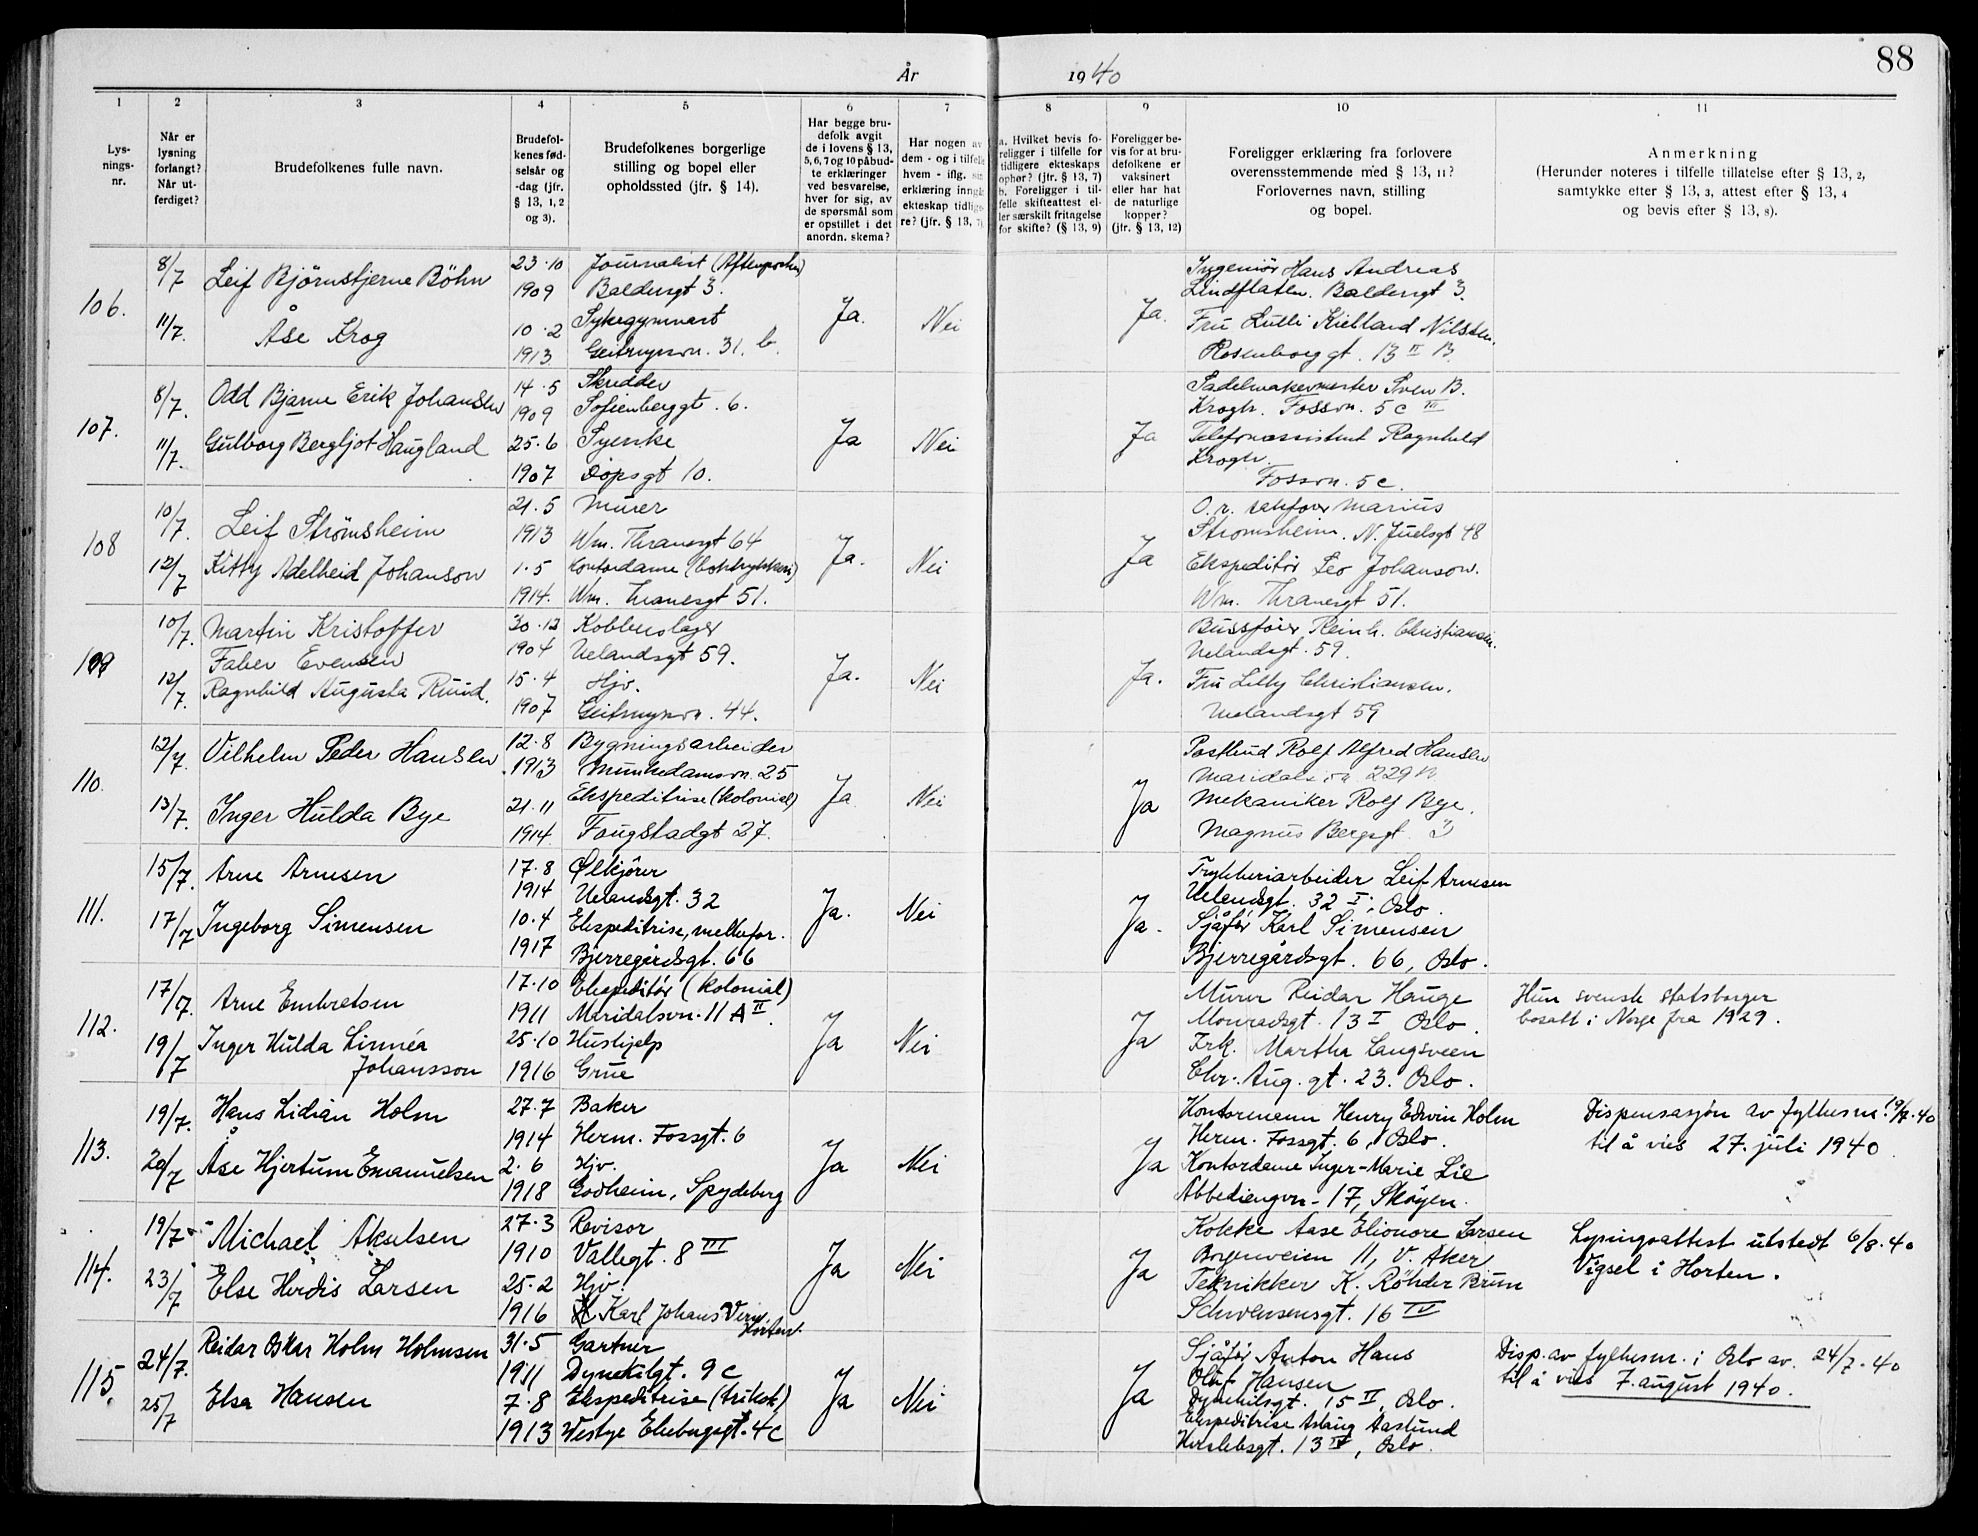 88
År 1940
1 2 3 4 5 6 7 8 9 10 11
Lys-
nings-
nr.
Når er
lysning
forlangt?
Når ut-
ferdiget?
Brudefolkenes fulle navn.
Brudefol-
kenes fød-
selsår og
-dag (jfr.
§ 13, 1, 2
og 3).
Brudefolkenes borgerlige
stilling og bopel eller
opholdssted (jfr. § 14).
Har begge bru-
defolk avgit
de i lovens § 13,
5, 6, 7 og 10 påbud-
te erklæringer
ved besvarelse,
hver for sig, av
de spørsmål som
er opstillet i det
anordn. skema?
Har nogen av
dem - og i tilfelle
hvem - iflg. sin
erklæring inngå
ekteskap tidlige-
re? (jfr. § 13, 7)
a. Hvilket bevis fo-
religger i tilfelle for
tidligere ekteskaps
ophør? (jfr. § 13, 7)
b. Foreligger i til-
felle skifteattest el-
ler særskilt fritagelse
for skifte? (§ 13, 9)
Foreligger be-
vis for at bru-
defolkene er
vaksinert
eller har hat
de naturlige
kopper?
(jfr. § 13, 12)
Foreligger erklæring fra forlovere
overensstemmende med § 13, 11?
Forlovernes navn, stilling
og bopel.
Anmerkning
(Herunder noteres i tilfelle tillatelse efter § 13, 2,
samtykke efter § 13, 3, attest efter § 13, 4
og bevis efter § 13, 8).
106.
8/7
11/7.
Leif Bjørnstjerne Böhn
Åse Krog
23.10
1909
10.2
1913
Journalist (Aftenposten)
Baldersgt 3.
Sykegymnast
Geitmyrsvn. 31. b.
Ja.
Nei
Ja.
Ingeniør Hans Andreas
Lindflaten. Baldersgt 3.
Fru Lulli Kielland Nilsen.
Rosenborggt. 13 II B.
107.
8/7.
11/7.
Odd Bjarne Erik Johansen
Gulborg Bergljot Haugland
14.5
1909
25.6
1907
Skredder
Sofienberggt. 6.
Syerske
Dopsgt 10.
Ja
Nei
Ja
Sadelmakermester Sven B.
Krogh. Fossvn. 5c III
Telefonassistent Ragnhild
Krogh.
Fossvn. 5c.
108
10/7.
12/7
Leif Strömsheim
Kitty Adelheid Johanson
21.5
1913
1.5
1914.
Murer
Wm. Thranesgt 64
Kontordame (boktrykkeri)
Wm. Thranesgt 51.
Ja.
Nei
Ja
O.r. sakfører Marius
Strömsheim. N. Juelsgt 48
Ekspeditör Leo Johanson.
Wm. Thranesgt 51.
109
10/7.
12/7.
Martin Kristoffer
Faber Evensen
Ragnhild Augusta Ruud.
30.12
1904
15.4
1907
Kobberslager
Uelandsgt 59.
Hjv.
Geitmyrsvn. 44.
Ja.
Nei
Ja.
Bussfører Reinh. Christiansen.
Uelandsgt. 59.
Fru Lilly Christiansen.
Uelandsgt 59
110.
12/7.
13/7.
Vilhelm Peder Hansen
Inger Hulda Bye
12.8
1913
21.11
1914.
Bygningsarbeider
Munkedamsvn. 25
Ekspeditrise (kolonial)
Fougstadgt 27.
Ja
Nei
Ja
Postbud Rolf Alfred Hansen
Maridalsvn 229
Mekaniker Rolf Bye.
Magnus Bergsgt. 3
111.
15/7.
17/7
Arne Arnesen
Ingeborg Simensen
17.8
1914
10.4
1917
Ølkjører
Uelandsgt. 32
Ekspeditrise, melkefor.
Bjerregårdsgt. 66
Ja.
Nei
Ja.
Trykkeriarbeider Leif Arnesen
Uelandsgt. 32 I, Oslo.
Sjåfør Karl Simensen
Bjerregårdsgt. 66, Oslo.
112.
17/7.
19/7
Arne Embretsen
Inger Hulda Linnéa
Johansson
17.10
1911
25.10
1916
Ekspeditør (kolonial)
Maridalsvn. 11 A II.
Hushjelp
Grue
Ja
Nei
Ja
Murer Reidar Hauge
Monradsgt. 13 I Oslo.
Frk. Martha Langsveen
Chr. Aug. gt. 23. Oslo.
Hun svensk statsborger
bosatt i Norge fra 1929.
113.
19/7.
20/7
Hans Lidian Holm
Åse Hjertum Emanuelsen
27.7
1914
2.6
1918
Baker
Herm. Fossgt. 6
Hjv.
Godheim, Spydeberg
Ja
Nei
Ja
Kontormann Henry Edwin Holm
Herm. Fossgt. 6, Oslo.
Kontordame Inger-Marie Lie
Abbediengvn. 17, Skøyen.
Dispensasjon av fylkesm. 19/7.40
til å vies 27. juli 1940.
114.
19/7
23/7
Michael Akselsen
Else Herdis Larsen
27.3
1910
25.2
1916
Revisor
Vallegt. 8 III
Hjv.
Karl Johans Vern
Horten.
Ja
Nei
Ja
Kokke Aase Elionore Larsen
Borgenveien 11, V. Aker
Teknikker K. Röhder Brun
Schwensensgt. 16 IV
Lysningsattest utstedt 6/8.40
Vigsel i Horten.
115.
24/7.
25/7
Reidar Oskar Holm Holmsen
Elsa Hansen
31.5
1911
7.8
1913
Gartner
Dynekilgt. 9 c
Ekspeditrise (trikot.)
Westye Egebergsgt. 4c
Ja
Nei
Ja
Sjåfør Anton Hans
Oluf Hansen
Dynekilsgt. 15 II, Oslo.
Ekspeditrise Aslaug Aaslund
Herslebsgt. 13 IV, Oslo.
Disp. av fylkesm. i Oslo av. 24/7.40
til å vies 7. august 1940.